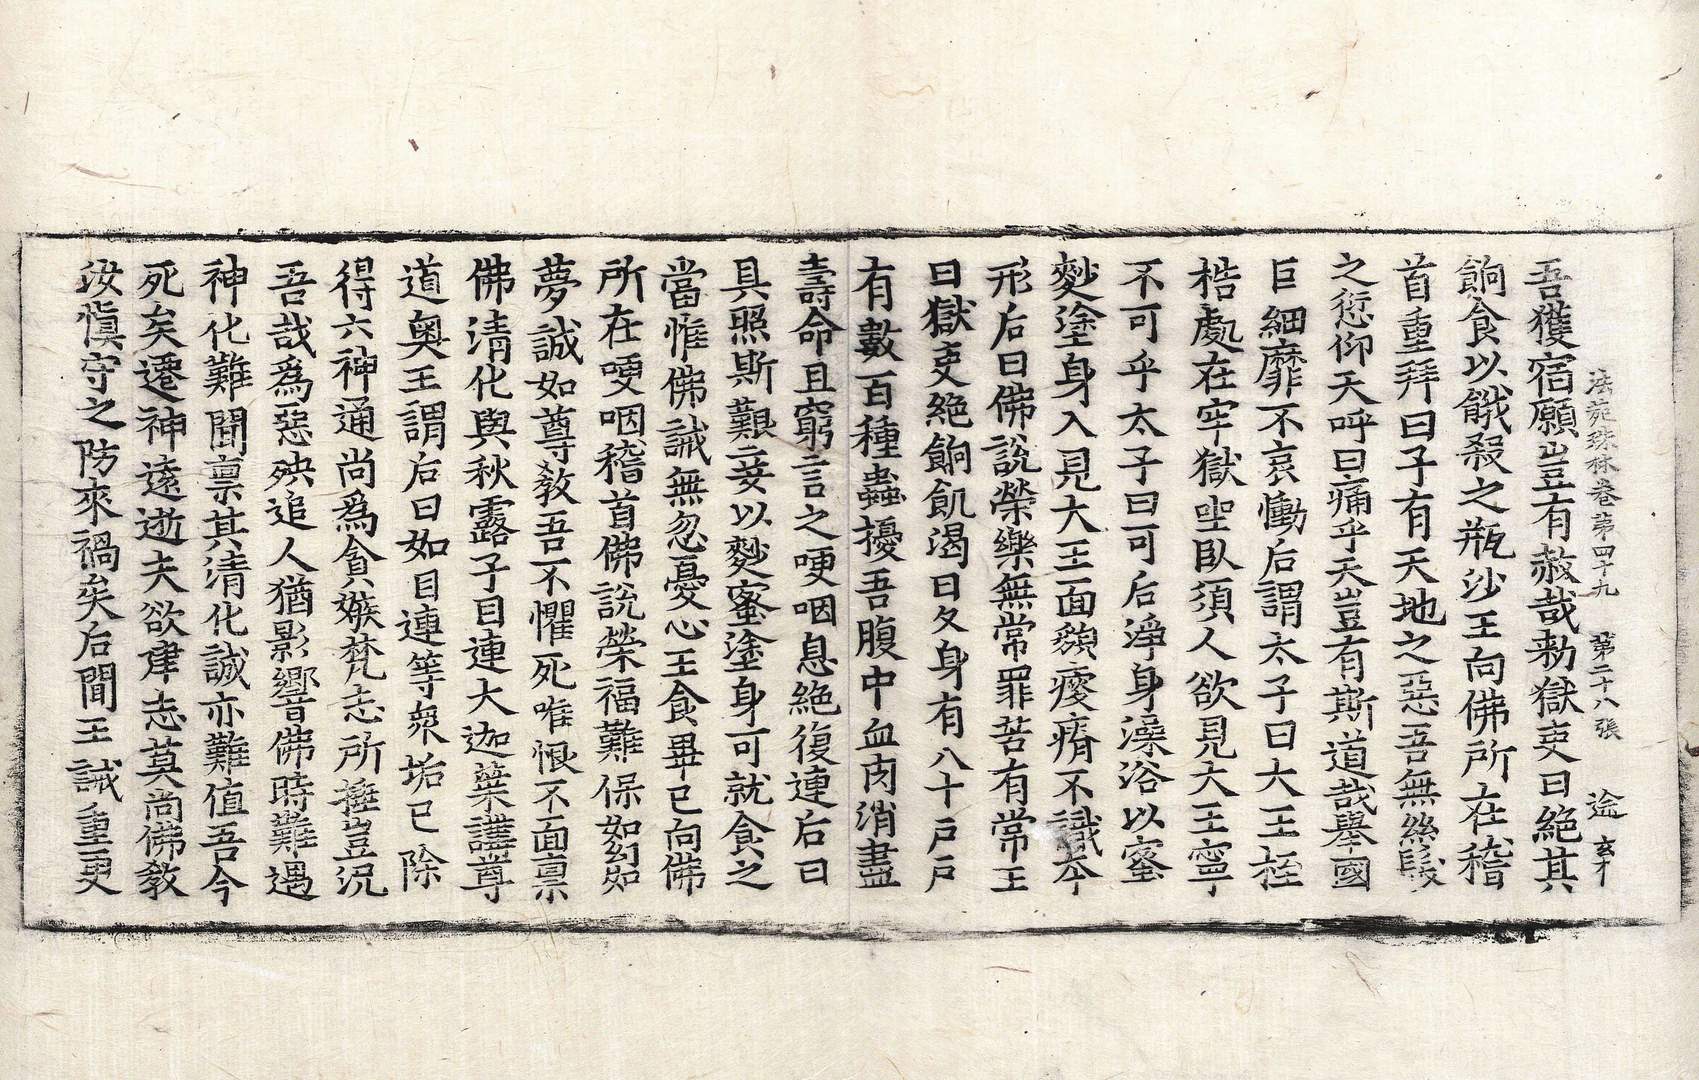 法苑珠林卷第四十九 第二十八張 途 玄才
吾獲宿願豈有赦哉勑獄吏曰絶其
餉食以餓殺之瓶沙王向佛所在稽
首重拜曰子有天地之惡吾無絲髮
之愆仰天呼曰痛乎天豈有斯道哉舉國
巨細靡不哀慟后謂太子曰大王桎
梏處在牢獄坐臥須人欲見大王寧
不可乎太子曰可后淨身澡浴以蜜
麨塗身入見大王面顇瘦瘠不識本
形后曰佛說榮樂無常罪苦有常王
曰獄吏絶餉飢渴日久身有八十戶戶
有數百種蟲擾吾腹中血肉消盡
壽命且窮言之哽咽息絶復連后曰
具照斯艱妾以麨蜜塗身可就食之
當惟佛誡無忽憂心王食畢已向佛
所在哽咽稽首佛說榮福難保如幻如
夢誠如尊教吾不懼死唯恨不面稟
佛清化與秋露子目連大迦葉講尊
道奥王謂后曰如目連等衆垢已除
得六神通尚爲貪嫉梵志所捶豈況
吾哉爲惡殃追人猶影響佛時難遇
神化難聞稟其清化誠亦難值吾今
死矣遷神遠逝夫欲建志莫尚佛教
汝愼守之防來禍矣后聞王誡重更